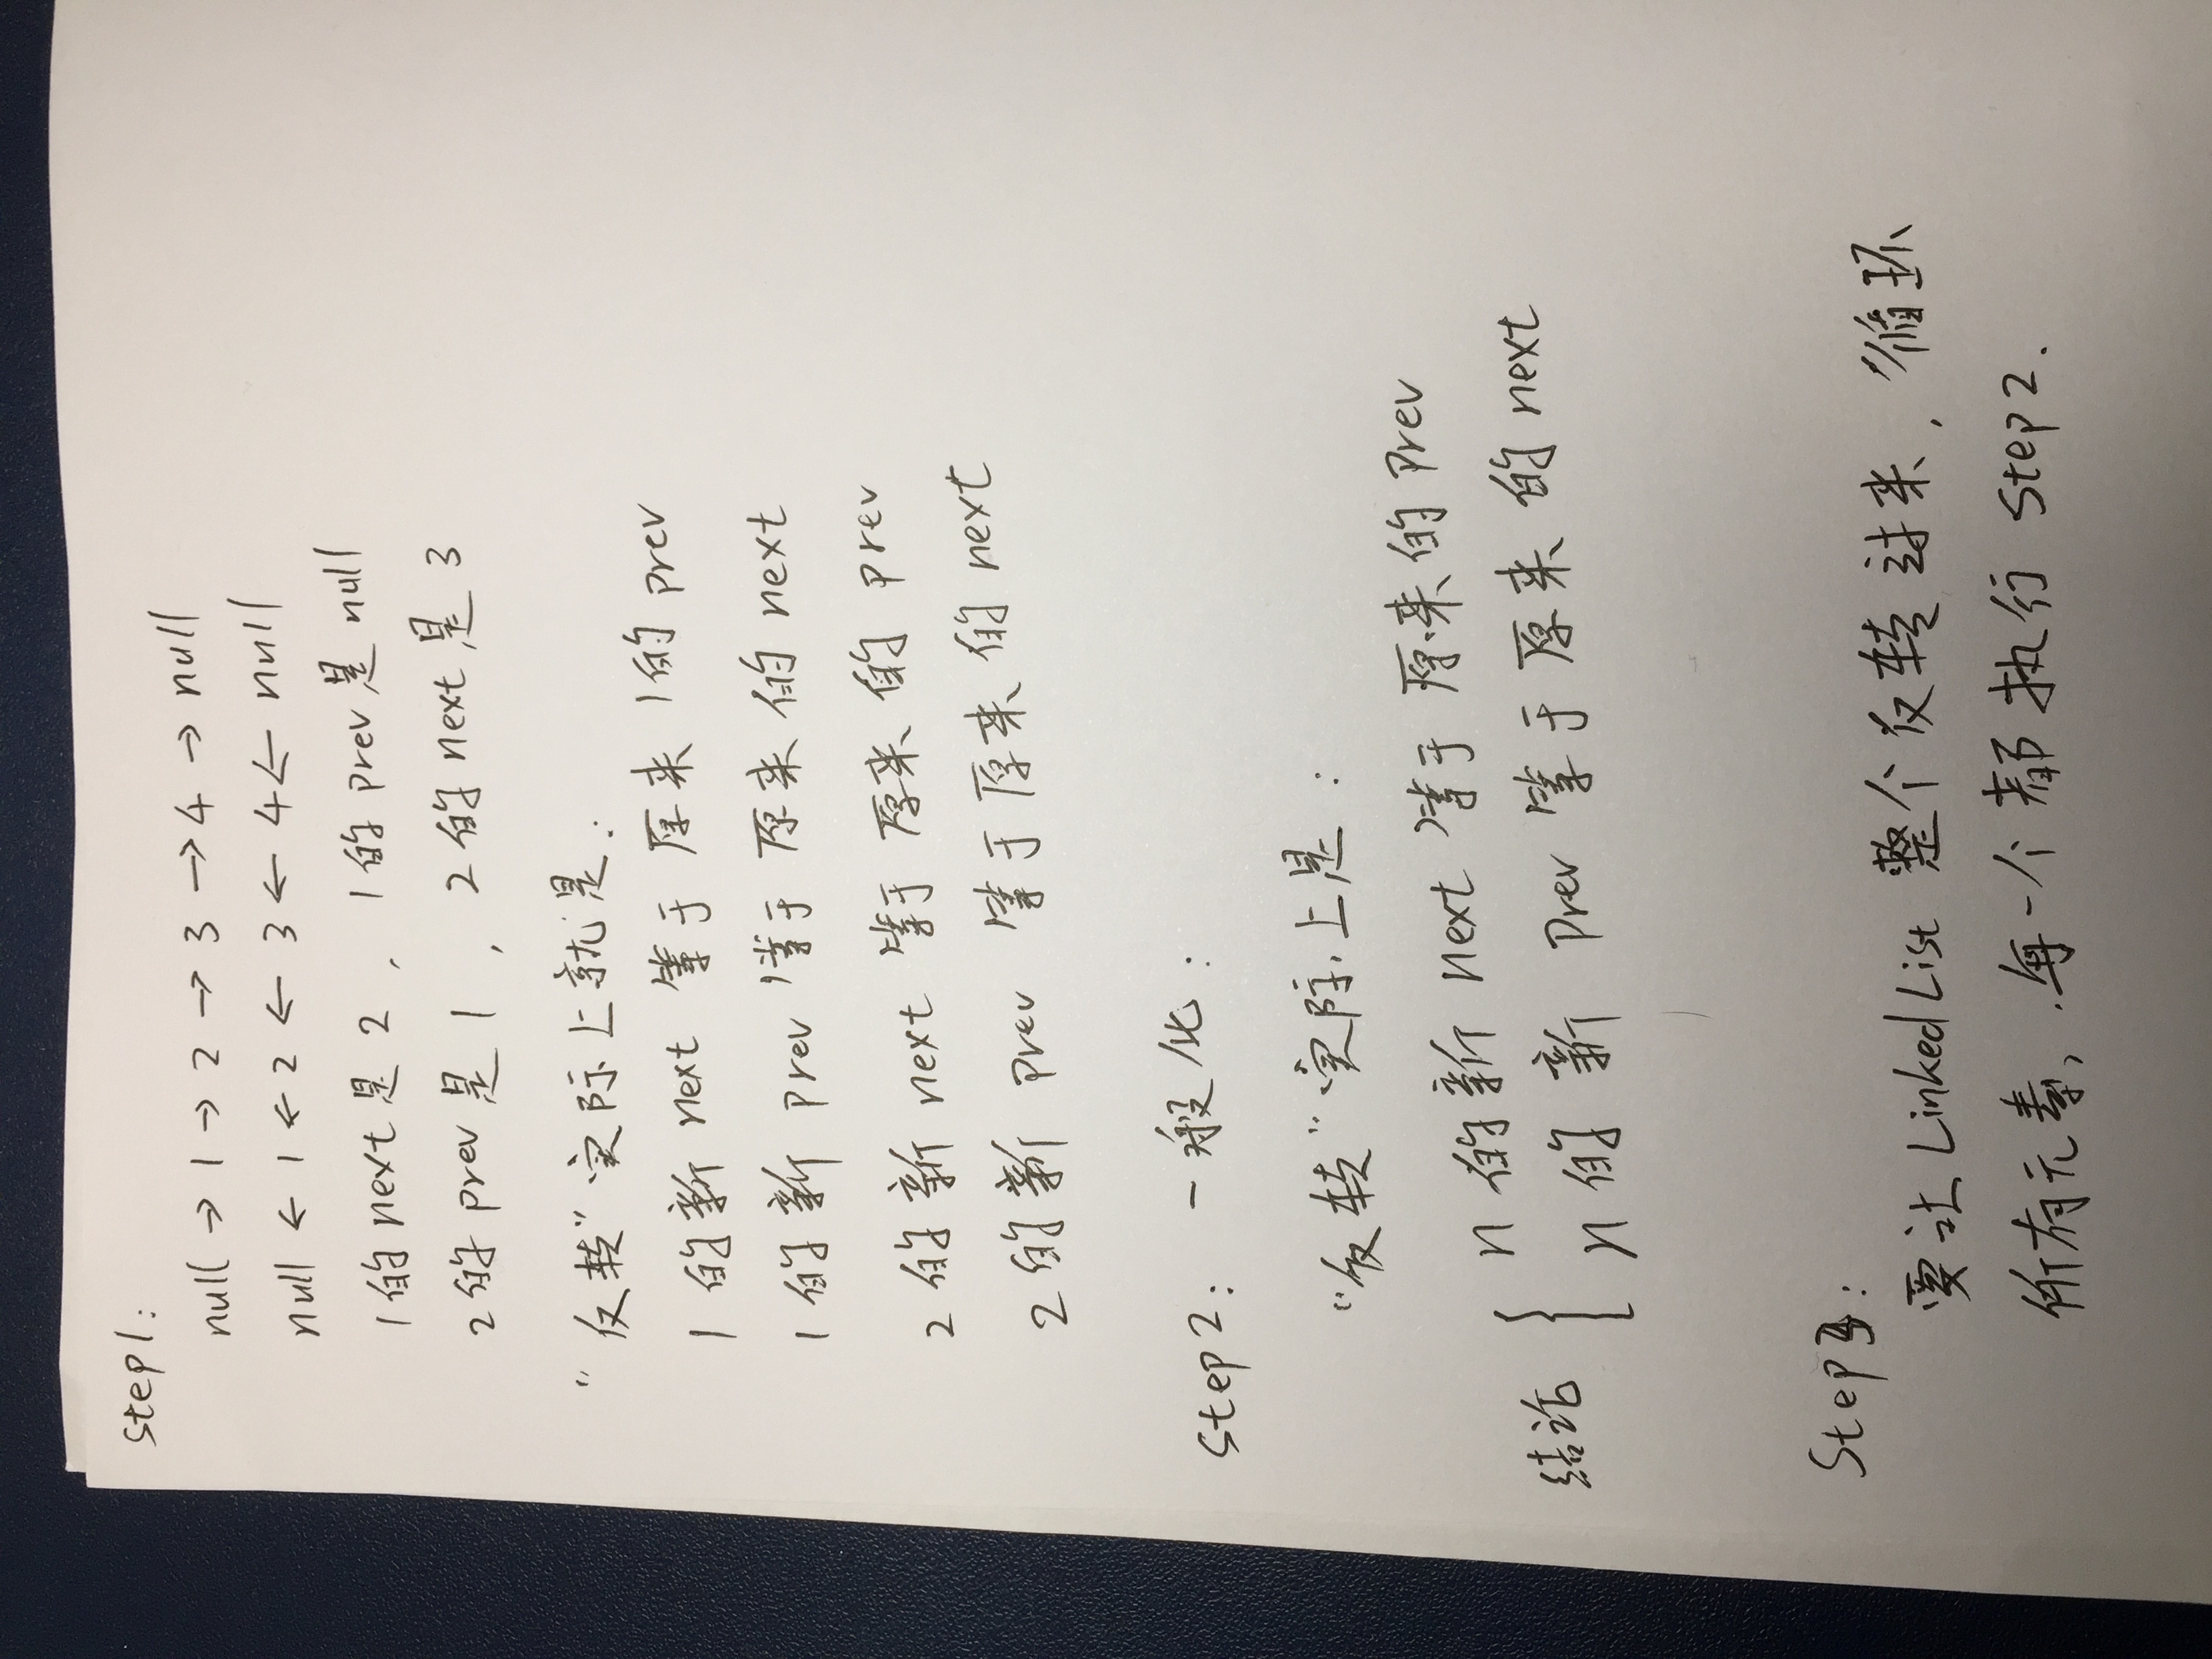 step1:
null → 1 → 2 → 3 → 4 → null
null ← 1 ← 2 ← 3 ← 4 ← null
1的next是2, 1的prev是null
2的prev是1, 2的next是3
"反转"实际上就是:
1的新next等于原来1的prev
1的新prev等于原来的next
2的新next等于原来的prev
2的新prev等于原来的next
step2: 一般化:
"反转"实际上是:
n的新next等于原来的prev
结论
n的新prev等于原来的next
Step3:
要让LinkedList整个反转过来, 循环
所有元素, 每一个都执行step2.